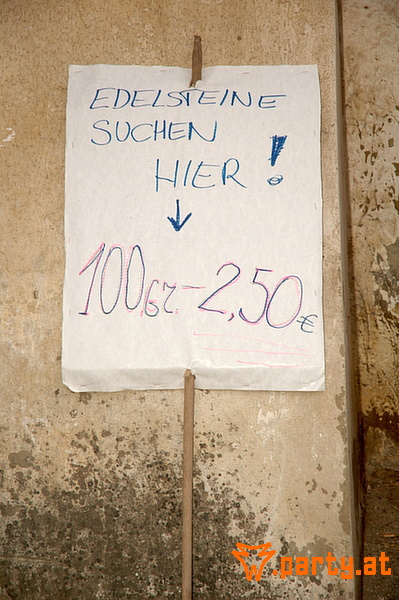 EDELSTEINE
SUCHEN
HIER!
100gr. - 2,50€
party.at